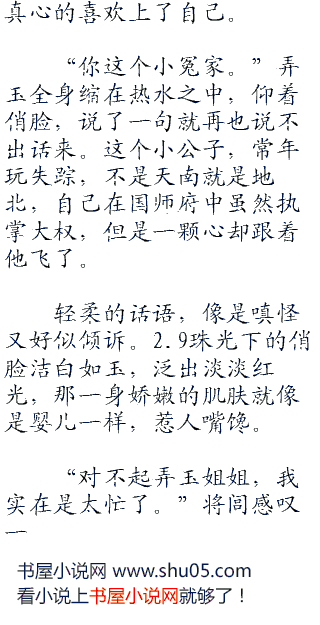 真心的喜欢上了自己。
“你这个小冤家。”弄
玉全身缩在热水之中，仰着
俏脸，说了一句就再也说不
出话来。这个小公子，常年
玩失踪，不是天南就是地
北，自己在国师府中虽然执
掌大权，但是一颗心却跟着
他飞了。
轻柔的话语，像是嗔怪
又好似倾诉。2.9珠光下的俏
脸洁白如玉，泛出淡淡红
光，那一身娇嫩的肌肤就像
是婴儿一样，惹人嘴馋。
“对不起弄玉姐姐，我
实在是太忙了。”将闾感叹
一
书屋小说网 www.shu05.com
看小说上书屋小说网就够了！